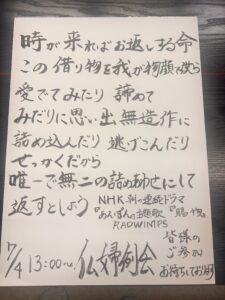 時が来ればお返しする命
この借り物を我が物顔で僕ら
愛でてみたり 諦めて
みたりに思い出無造作に
詰め込んだり 逃げこんだり
せっかくだから
唯一で無二の詰め合わせにして
返すとしよう
NHK 朝の連続ドラマ
「あんぱんの主題歌」『賜物』
RADWIMPS
7/4 13:00〜 仏婦例会
皆様の
ご参加
お待ちしております